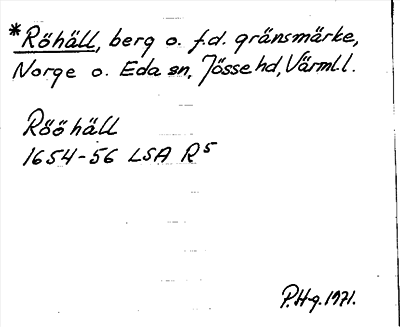 *Röhäll, berg o. f.d. gränsmärke,
Norge o. Eda sn, Jösse hd, Värml. l.
Röö häll
1654-56 LSA R5
P.H-g. 1971.